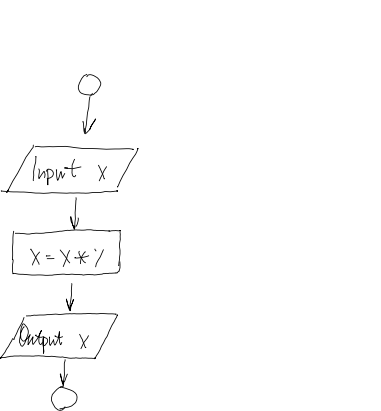 Input x
x = x * y
Output x